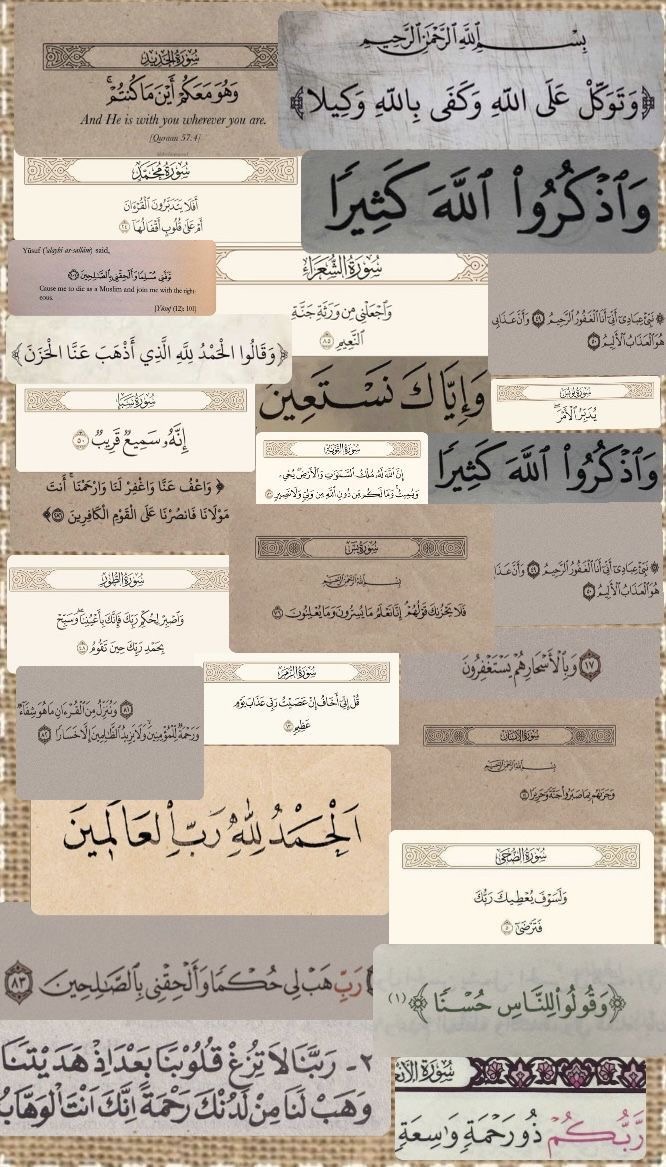 سُورَةُ الحَدِيد
وَهُوَ مَعَكُمْ أَيْنَ مَا كُنتُمْ ۚ
And He is with you wherever you are.
[Quraan 57:4]
بِسْمِ ٱللَّهِ ٱلرَّحْمَٰنِ ٱلرَّحِيمِ
﴿وَتَوَكَّلْ عَلَى اللَّهِ وَكَفَى بِاللَّهِ وَكِيلًا﴾
سُورَةُ مُحَمَّد
أَفَلَا يَتَدَبَّرُونَ الْقُرْءَانَ
أَمْ عَلَىٰ قُلُوبٍ أَقْفَالُهَا ٢٤
وَٱذْكُرُوا۟ ٱللَّهَ كَثِيرًا
Yūsuf ('alayhi as-sallām) said,
تَوَفَّنِي مُسْلِمًا وَأَلْحِقْنِي بِالصَّالِحِينَ ١٠١
Cause me to die as a Muslim and join me with the right-
eous.
[Yūsuf (12): 101]
سُورَةُ الشُّعَرَاءِ
وَاجْعَلْنِي مِن وَرَثَةِ جَنَّةِ
النَّعِيمِ ٨٥
۞ نَبِّئْ عِبَادِي أَنِّي أَنَا الْغَفُورُ الرَّحِيمُ ٤٩ وَأَنَّ عَذَابِي
هُوَ الْعَذَابُ الْأَلِيمُ ٥٠
﴿وَقَالُوا الْحَمْدُ لِلَّهِ الَّذِي أَذْهَبَ عَنَّا الْحَزَنَ﴾
سُورَةُ سَبَإ
إِنَّهُ سَمِيعٌ قَرِيبٌ ٥٠
وَإِيَّاكَ نَسْتَعِينُ
سُورَةُ يُونُس
يُدَبِّرُ الْأَمْرَ ۖ
سُورَةُ التَّوْبَةِ
إِنَّ اللَّهَ لَهُ مُلْكُ السَّمَٰوَٰتِ وَالْأَرْضِ يُحْيِي
وَيُمِيتُ وَمَا لَكُم مِّن دُونِ اللَّهِ مِن وَلِيٍّ وَلَا نَصِيرٍ
وَٱذْكُرُوا۟ ٱللَّهَ كَثِيرًا
﴿ وَاعْفُ عَنَّا وَاغْفِرْ لَنَا وَارْحَمْنَا ۚ أَنتَ
مَوْلَانَا فَانصُرْنَا عَلَى الْقَوْمِ الْكَافِرِينَ ﴾
سُورَةُ يسٓ
بِسْمِ اللَّهِ الرَّحْمَٰنِ الرَّحِيمِ
فَلَا يَحْزُنكَ قَوْلُهُمْ ۘ إِنَّا نَعْلَمُ مَا يُسِرُّونَ وَمَا يُعْلِنُونَ
۞ نَبِّئْ عِبَادِي أَنِّي أَنَا الْغَفُورُ الرَّحِيمُ ٤٩ وَأَنَّ عَذَا
هُوَ الْعَذَابُ الْأَلِيمُ ٥٠
سُورَةُ الطُّورِ
وَاصْبِرْ لِحُكْمِ رَبِّكَ فَإِنَّكَ بِأَعْيُنِنَا ۖ وَسَبِّحْ
بِحَمْدِ رَبِّكَ حِينَ تَقُومُ ٤٨
١٧ وَبِالْأَسْحَارِ هُمْ يَسْتَغْفِرُونَ
سُورَةُ الزُّمَرِ
قُلْ إِنِّي أَخَافُ إِنْ عَصَيْتُ رَبِّي عَذَابَ يَوْمٍ
عَظِيمٍ ١٣
٨١ وَنُنَزِّلُ مِنَ الْقُرْءَانِ مَا هُوَ شِفَآءٌ
وَرَحْمَةٌ لِّلْمُؤْمِنِينَ ۙ وَلَا يَزِيدُ الظَّالِمِينَ إِلَّا خَسَارًا ٨٢
سُورَةُ الإِنسَانِ
بِسْمِ اللَّهِ الرَّحْمَٰنِ الرَّحِيمِ
وَجَزَاهُم بِمَا صَبَرُوا جَنَّةً وَحَرِيرًا
اَلْحَمْدُ لِلّٰهِ رَبِّ الْعَالَمِينَ
سُورَةُ الضُّحَىٰ
وَلَسَوْفَ يُعْطِيكَ رَبُّكَ
فَتَرْضَىٰ ٥
رَبِّ هَبْ لِي حُكْمًا وَأَلْحِقْنِي بِالصَّالِحِينَ ٨٣
﴿وَقُولُوا لِلنَّاسِ حُسْنًا﴾ (١)
٢- رَبَّنَا لَا تُزِغْ قُلُوبَنَا بَعْدَ إِذْ هَدَيْتَنَا
وَهَبْ لَنَا مِنْ لَدُنْكَ رَحْمَةً إِنَّكَ أَنْتَ الْوَهَّابُ
سُورَةُ الأَنْعَـ
رَّبُّكُمْ ذُو رَحْمَةٍ وَاسِعَةٍ